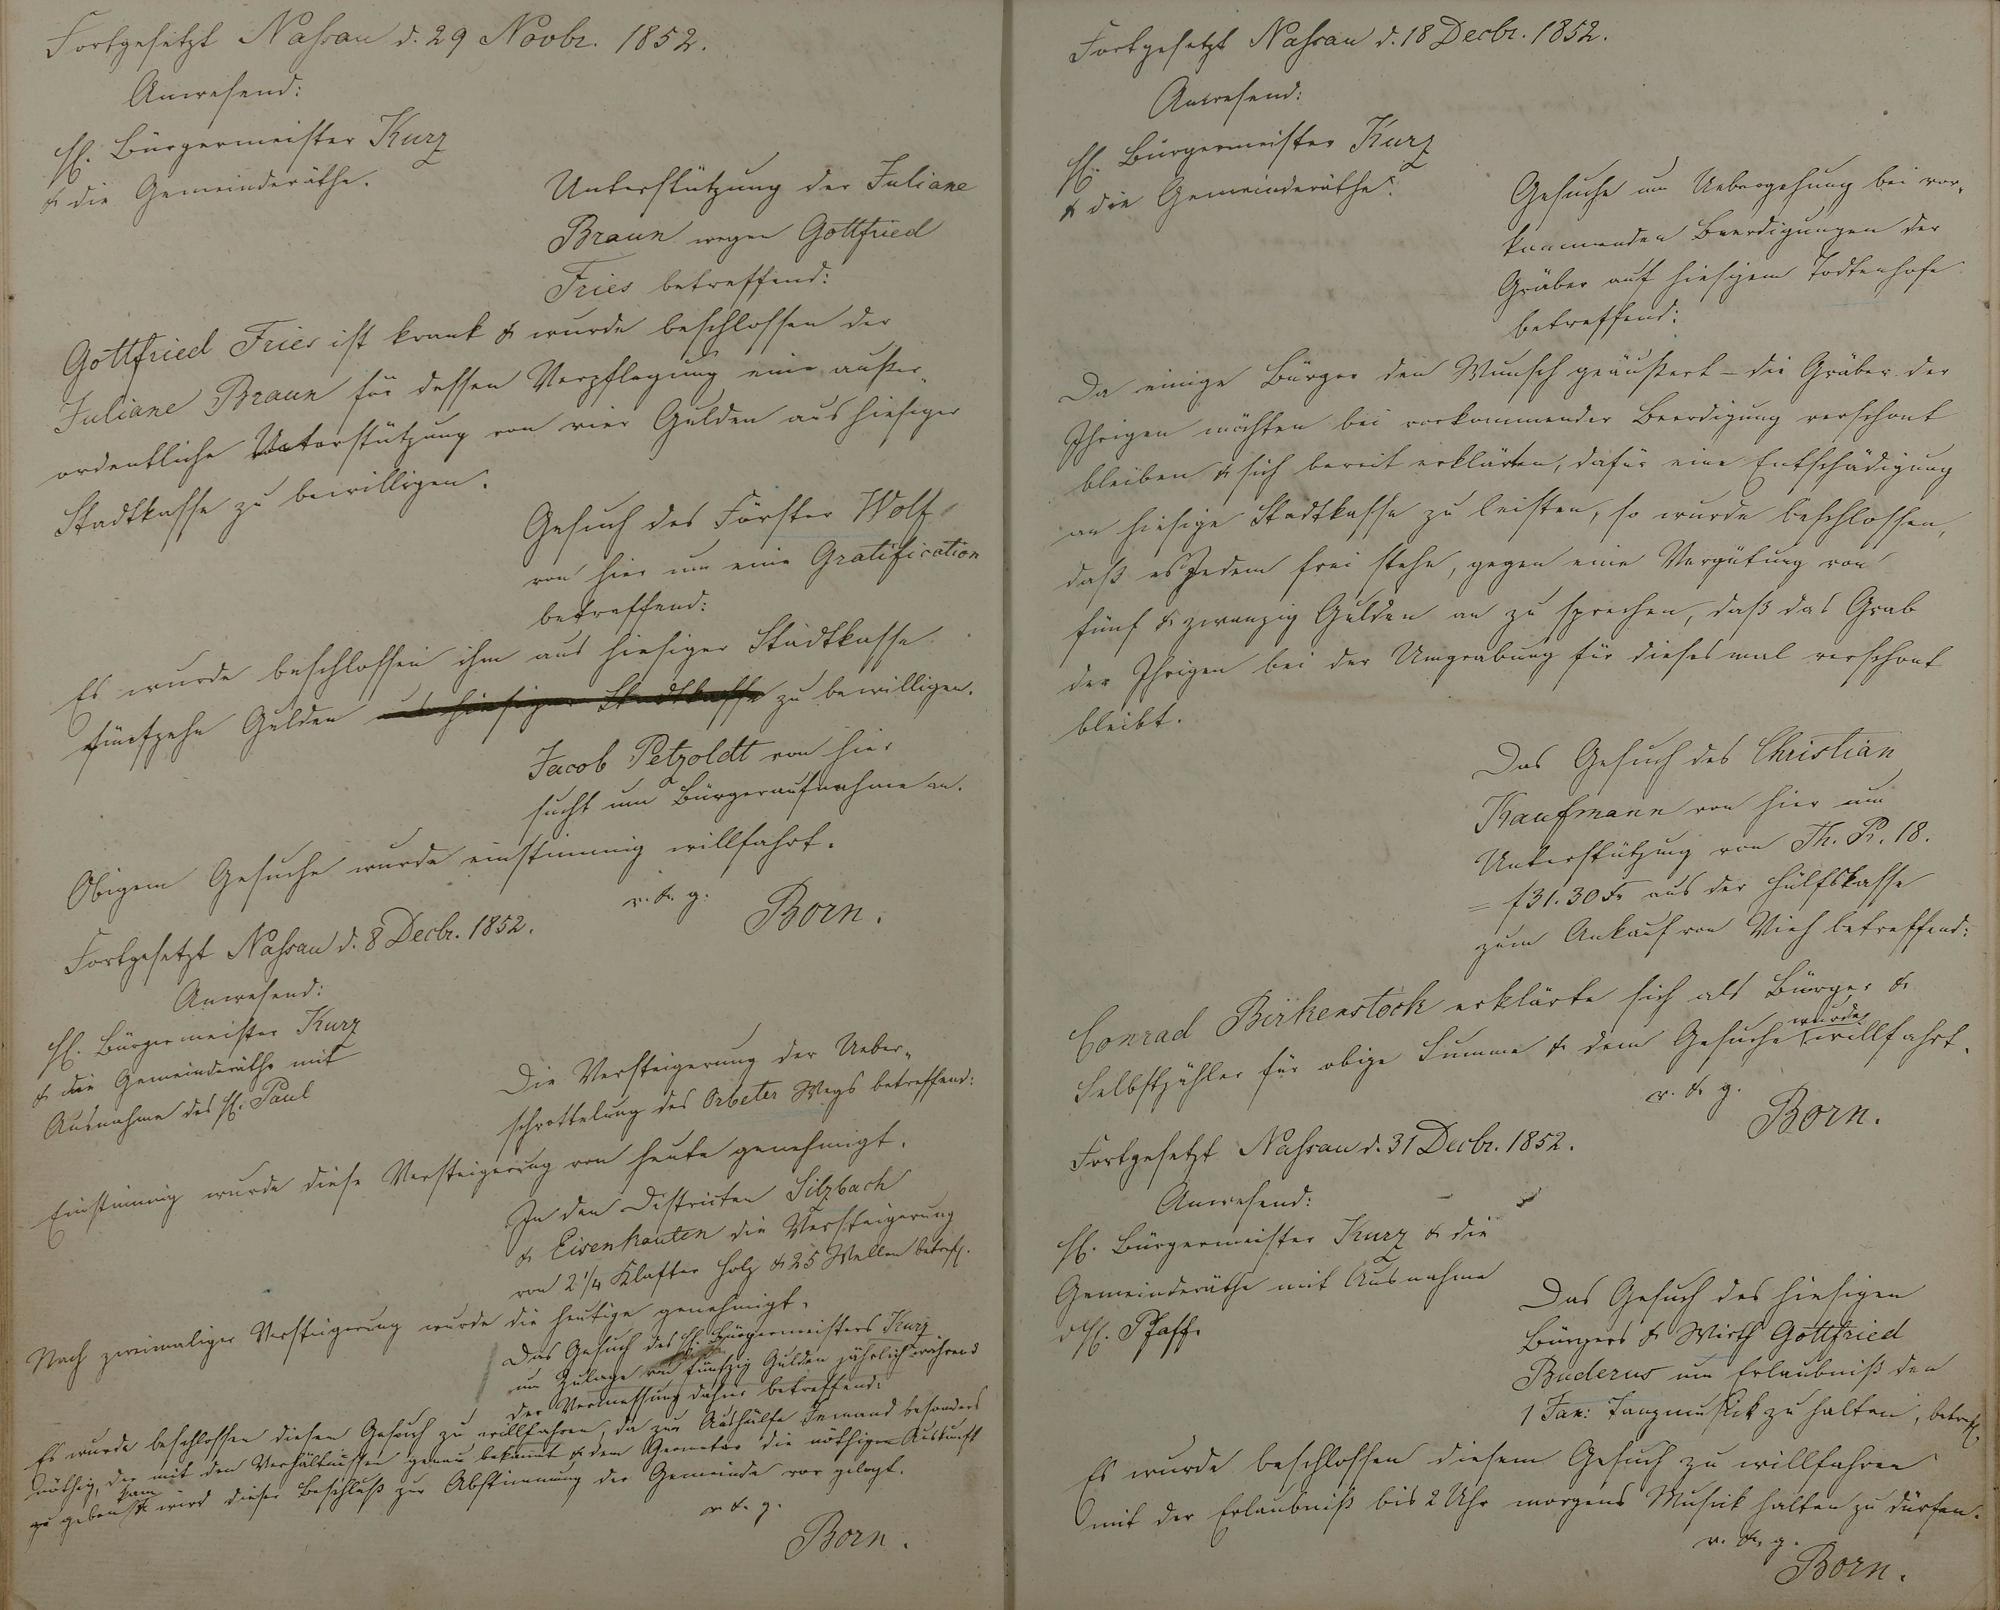 Fortgesetzt Nassau d. 29 Novbr. 1852.
Anwesend:
H. Bürgermeister Kurz
& die Gemeinderäthe.
Unterstützung der Juliane
Braun wegen Gottfried
Fries betreffend:
Gottfried Fries ist krank & wurde beschlossen der
Juliane Braun für dessen Verpflegung eine außer-
ordentliche Unterstützung von vier Gulden aus hiesiger
Stadtkasse zu bewilligen.
Gesuch des Förster Wolf
von hier um eine Gratification
betreffend:
Es wurde beschlossen ihm aus hiesiger Stadtkasse
fünfzehn Gulden aus hiesiger Stadtkasse zu bewilligen.
Jacob Petzoldt von hier
sucht um Bürgeraufnahme an.
Obigem Gesuche wurde einstimmig willfahrt.
v. & g.
Born.
Fortgesetzt Nassau d. 8 Decbr. 1852.
Anwesend:
H. Bürgermeister Kurz
& die Gemeinderäthe mit
Ausnahme des H. Paul
Die Versteigerung der Ueber-
schrottelung des Orbeter Wegs betreffend:
Einstimmig wurde diese Versteigerung von heute genehmigt.
In den Districten Silzbach
& Eisenkauten die Versteigerung
von 2 1/4 Klafter Holz & 25 Wellen betreff.
Nach zweimaliger Versteigerung wurde die heutige genehmigt.
Das Gesuch des H. Bürgermeisters Kurz
um Zulage von fünfzig Gulden jährlich während
der Vermessung dahier betreffend:
Es wurde beschlossen diesen Gesuch zu willfahren, da zur Aushülfe Jemand besonders
nöthig, der mit den Verhältnissen genau bekannt & dem Geometer die nöthigen Auskunft
zu geben kann & wird dieser Beschluß zur Abstimmung der Gemeinde vor gelegt.
v. & g.
Born.
Fortgesetzt Nassau d. 18 Decbr. 1852.
Anwesend:
H. Bürgermeister Kurz
& die Gemeinderäthe.
Gesuche um Uebergehung bei vor-
kommenden Beerdigungen der
Gräber auf hiesigem Todtenhofe
betreffend:
Da einige Bürger den Wunsch geäußert – die Gräber der
Ihrigen möchten bei vorkommender Beerdigung verschont
bleiben & sich bereit erklärten, dafür eine Entschädigung
an hiesige Stadtkasse zu leisten, so wurde beschlossen,
daß es Jedem frei stehe, gegen eine Vergütung von
fünf & zwanzig Gulden an zu sprechen, daß das Grab
der Ihrigen bei der Umgrabung für diesesmal verschont
bleibt.
Das Gesuch des Christian
Kaufmann von hier um
Unterstützung von Th. Pr. 18.
= f 31. 30 Kr aus der Hülfskasse
zum Ankauf von Vieh betreffend:
Conrad Birkenstock erklärte sich als Bürge &
Selbstzahler für obige Summe & dem Gesuche wurde willfahrt.
v. & g.
Born.
Fortgesetzt Nassau d. 31 Decbr. 1852.
Anwesend:
H. Bürgermeister Kurz & die
Gemeinderäthe mit Ausnahme
d H. Pfaff.
Das Gesuch des hiesigen
Bürgers & Wirth Gottfried
Buderus um Erlaubniß den
1 Jan: Tanzmusick zu halten, betreff.
Es wurde beschlossen diesem Gesuch zu willfahren
mit der Erlaubniß bis 2 Uhr morgens Musick halten zu dürfen.
v. & g.
Born.